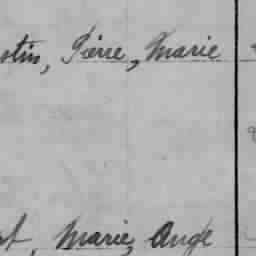 stin, Pierre, Marie
st, Marie, Ange